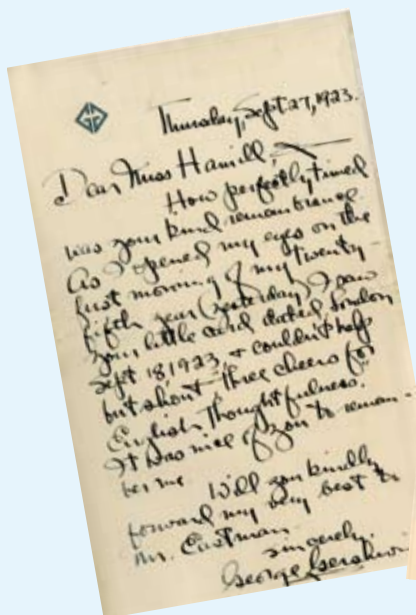 Thursday, Sept 27, 1923.
Dear Miss Hamill,
How perfectly timed
was your kind remembrance.
As I opened my eyes on the
first morning of my twenty-
fifth year (yesterday) I saw
your little card dated London
Sept 18 1923, & couldn't help
but shout "three cheers for
English Thoughtfulness.
It was nice of you to remem-
ber me.
Will you kindly
forward my very best to
Mr. Eastman.
Sincerely,
George Gershwin